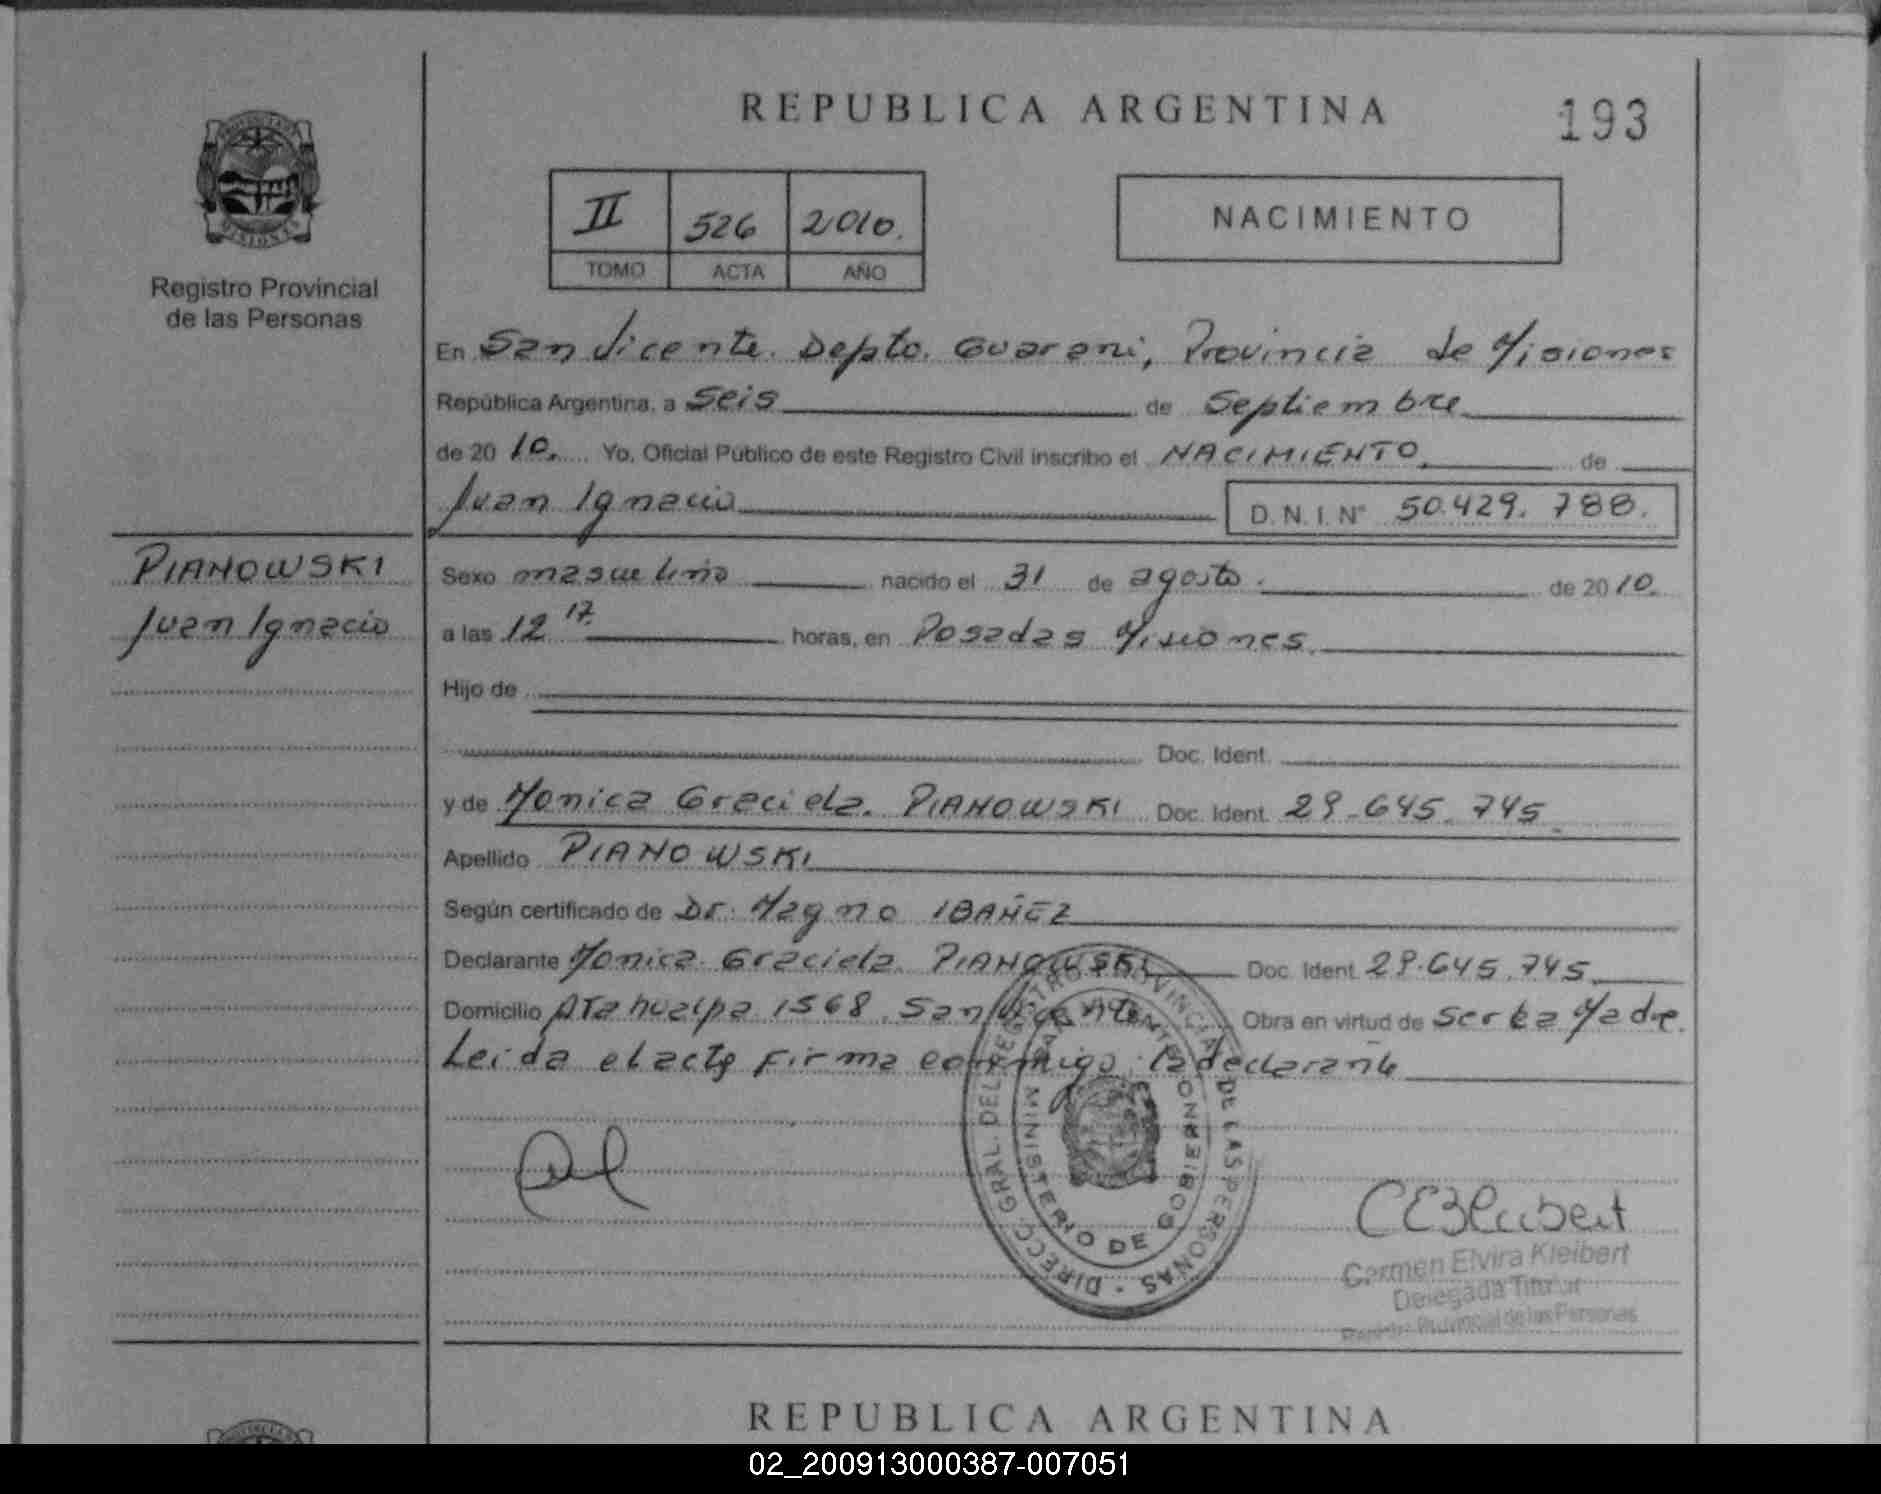 REPUBLICA ARGENTINA
193
PROVINCIA DE MISIONES
Registro Provincial
de las Personas
II 526 2010.
TOMO ACTA AÑO
NACIMIENTO
En San Vicente. Depto. Guarani, Provincia de Misiones
República Argentina, a seis de Septiembre
de 20 10. Yo, Oficial Público de este Registro Civil inscribo el NACIMIENTO de
Juan Ignacio D.N.I. Nº 50.429.788.
PIANOWSKI
Juan Ignacio
Sexo masculino nacido el 31 de agosto. de 20 10.
a las 12 17. horas, en Posadas Misiones.
Hijo de
Doc. Ident.
y de Monica Graciela. PIANOWSKI Doc. Ident. 29.645.745.
Apellido PIANOWSKI
Según certificado de Dr. Magno IBAÑEZ
Declarante Monica Graciela PIANOWSKI Doc. Ident. 29.645.745.
Domicilio Atahualpa 1568. San Vicente Obra en virtud de ser la Madre.
Leida el acta firma conmigo la declarante
DIRECC. GRAL. DEL REGISTRO PROVINCIAL DE LAS PERSONAS
SAN VICENTE
MINISTERIO DE GOBIERNO
CEKleibert
Carmen Elvira Kleibert
Delegada Titular
Registro Provincial de las Personas
REPUBLICA ARGENTINA
02_200913000387-007051